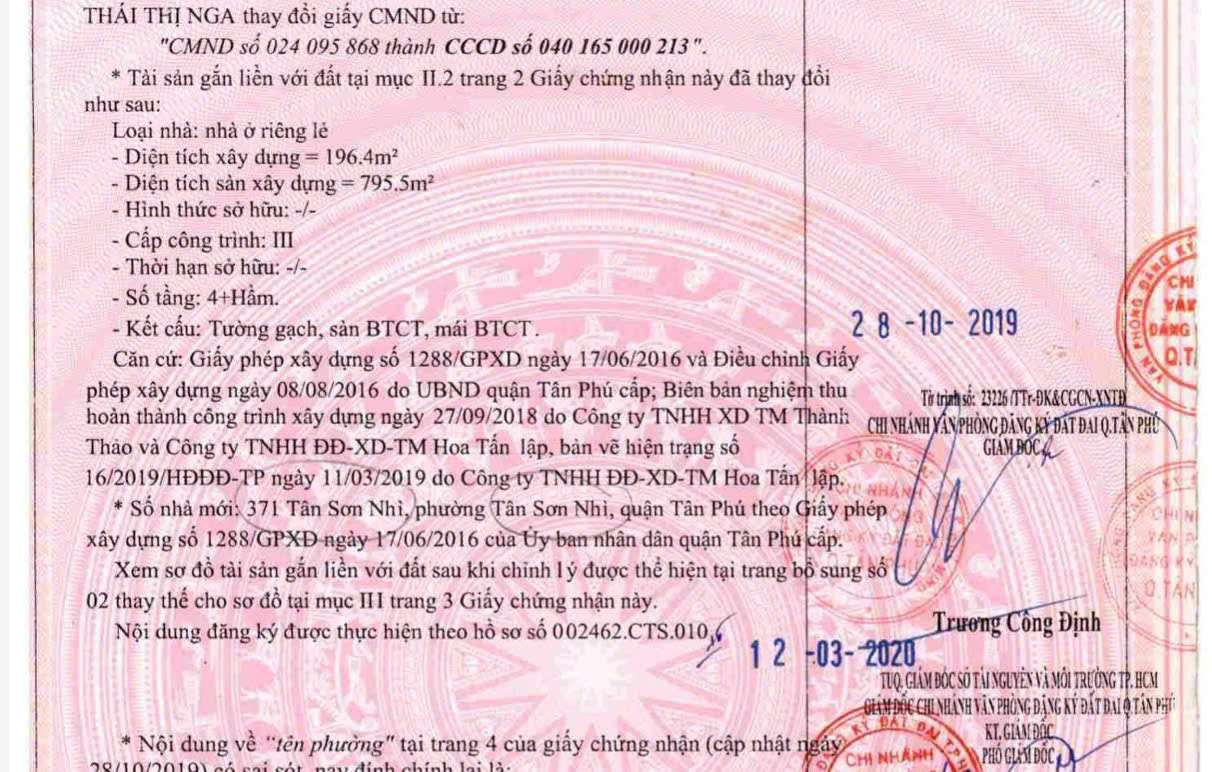 THÁI THỊ NGA thay đổi giấy CMND từ:
"CMND số 024 095 868 thành CCCD số 040 165 000 213".
* Tài sản gắn liền với đất tại mục II.2 trang 2 Giấy chứng nhận này đã thay đổi
như sau:
Loại nhà: nhà ở riêng lẻ
- Diện tích xây dựng = 196.4m²
- Diện tích sàn xây dựng = 795.5m²
- Hình thức sở hữu: -/-
- Cấp công trình: III
- Thời hạn sở hữu: -/-
- Số tầng: 4+Hầm.
- Kết cấu: Tường gạch, sàn BTCT, mái BTCT.
Căn cứ: Giấy phép xây dựng số 1288/GPXD ngày 17/06/2016 và Điều chỉnh Giấy
phép xây dựng ngày 08/08/2016 do UBND quận Tân Phú cấp; Biên bản nghiệm thu
hoàn thành công trình xây dựng ngày 27/09/2018 do Công ty TNHH XD TM Thành
Thảo và Công ty TNHH ĐĐ-XD-TM Hoa Tấn lập, bản vẽ hiện trạng số
16/2019/HĐĐĐ-TP ngày 11/03/2019 do Công ty TNHH ĐĐ-XD-TM Hoa Tấn lập.
* Số nhà mới: 371 Tân Sơn Nhì, phường Tân Sơn Nhì, quận Tân Phú theo Giấy phép
xây dựng số 1288/GPXD ngày 17/06/2016 của Ủy ban nhân dân quận Tân Phú cấp.
Xem sơ đồ tài sản gắn liền với đất sau khi chỉnh lý được thể hiện tại trang bổ sung số
02 thay thế cho sơ đồ tại mục III trang 3 Giấy chứng nhận này.
Nội dung đăng ký được thực hiện theo hồ sơ số 002462.CTS.010
* Nội dung về "tên phường" tại trang 4 của giấy chứng nhận (cập nhật ngày
28/10/2019) có sai sót, nay đính chính lại là:
28-10-2019
Tờ trình số: 23226 /TTr-ĐK&CGCN-XNTĐ
CHI NHÁNH VĂN PHÒNG ĐĂNG KÝ ĐẤT ĐAI Q.TÂN PHÚ
GIÁM ĐỐC
Trương Công Định
12-03-2020
TUQ. GIÁM ĐỐC SỞ TÀI NGUYÊN VÀ MÔI TRƯỜNG TP. HCM
GIÁM ĐỐC CHI NHÁNH VĂN PHÒNG ĐĂNG KÝ ĐẤT ĐAI Q.TÂN PHÚ
KT. GIÁM ĐỐC
PHÓ GIÁM ĐỐC
CHI NHÁNH